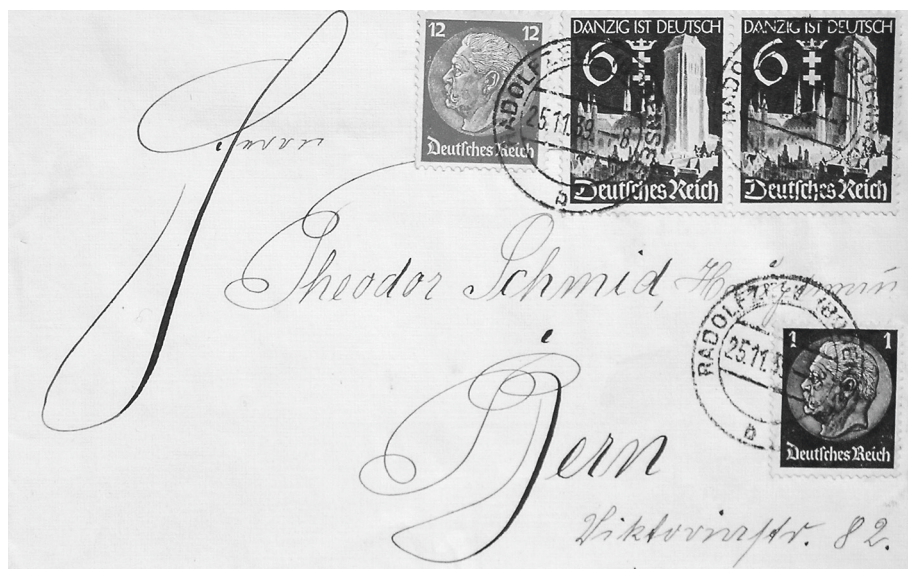 12 12
Deutsches Reich
DANZIG IST DEUTSCH
6
Deutsches Reich
DANZIG IST DEUTSCH
6
Deutsches Reich
25.11.39-8
b
Herrn
Theodor Schmid, Hauptmann
RADOLFZELL
25.11.3
b
1 1
Deutsches Reich
Bern
Viktoriastr. 82.